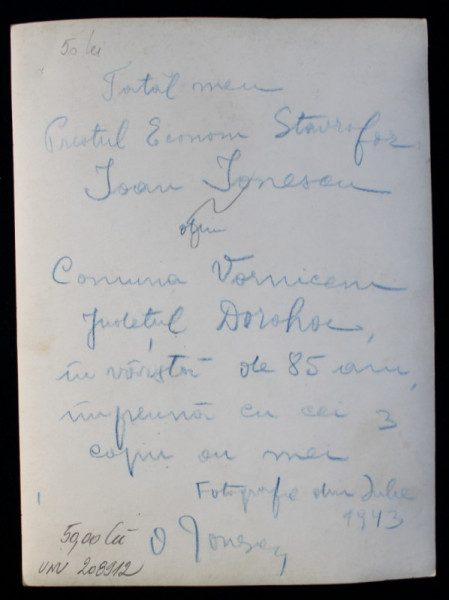 50 lei
Tatăl meu
Preotul Econom Stavrofor
Ioan Ionescu
din
Comuna Vorniceni
Județul Dorohoi,
în vârstă de 85 ani,
împreună cu cei 3
copii ai mei
Fotografie din Iulie
1943
I Ionescu
50,00 lei